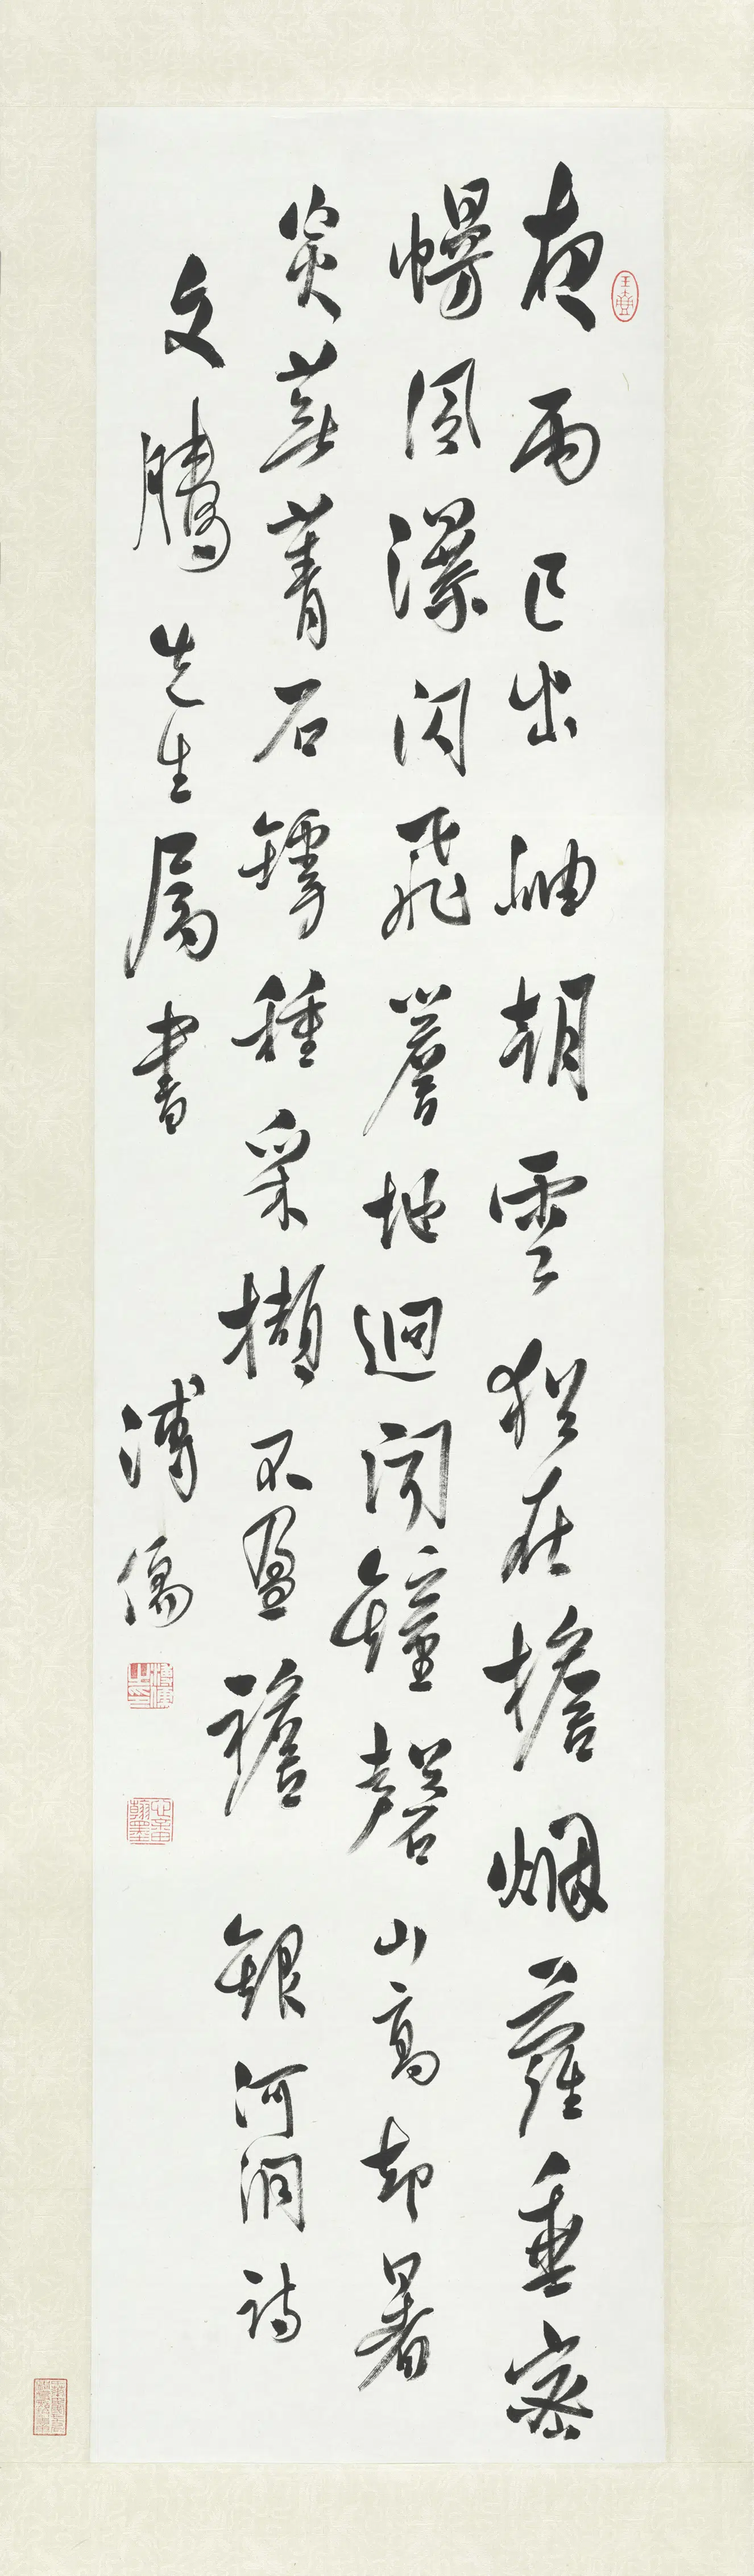 夜雨已出岫朝雲猶在檐烟蘿垂密
幔風瀑閃飛簷地迥聞鐘磬山高却暑
炎蕪菁石罅種采擷不盈襜 銀河洞詩
文騰先生屬書
溥儒